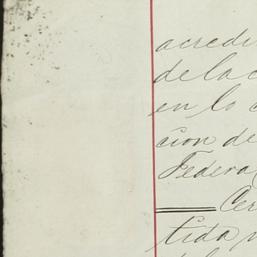 acredi
de la c
en lo
cion de
Federa
Cer
tida